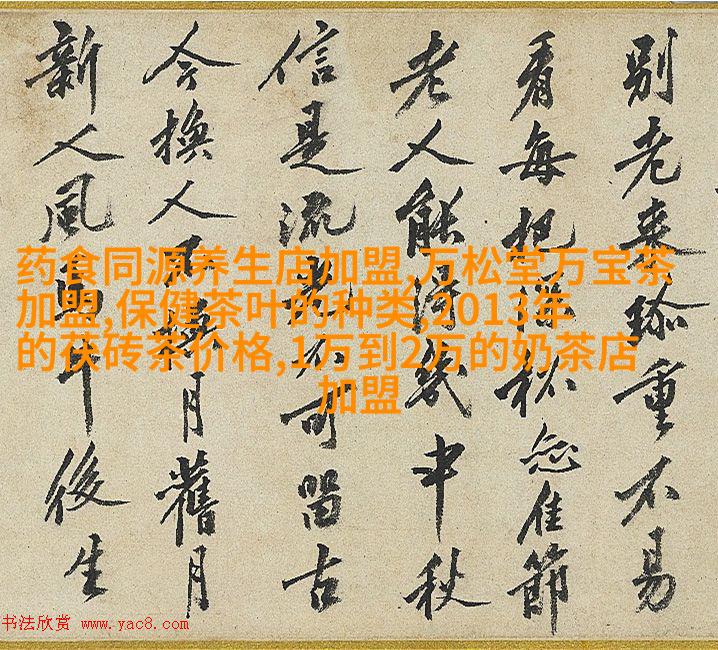 別老来珎重不易
看每把深杯佳節
老人能得幾中秋
信是流光不可留古
今換人不換月舊月
新人風馬牛後生
药食同源养生店加盟,万松堂万宝茶
加盟,保健茶叶的种类,2013年
的茯砖茶价格,1万到2万的奶茶店
加盟
书法欣赏 www.yac8.com